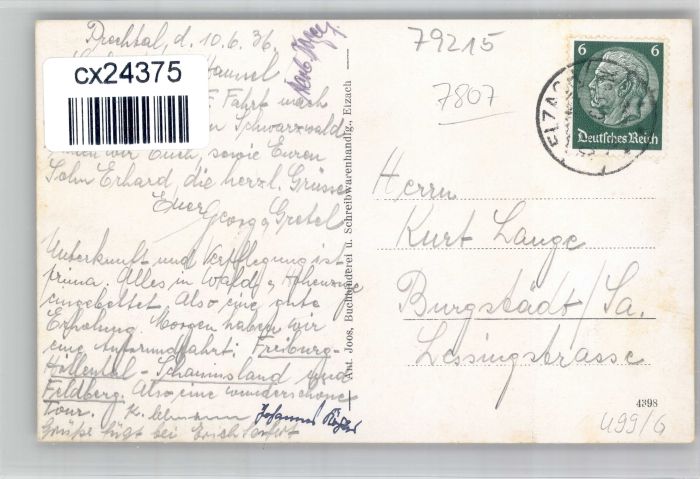 Prechtal, d. 10.6.36.
cx24375
Fahrt nach
Schwarzwald
wir Euch, sowie Euren
Sohn Erhard, die herzl. Grüsse
Euer
Georg u. Gretel
Unterkunft und Verpflegung ist
prima. Alles in Wald u. Höhenzüge
eingebettet. Also eine gute
Erholung. Morgen haben wir
eine Autorundfahrt: Freiburg-
Höllental - Schauinsland und
Feldberg. Also eine wunderschöne
Tour. K. Lehmann Johannes
Grüße fügt bei Erich Seifert
Ant. Joos, Buchbinderei u. Schreibwarenhandlg., Elzach
79215
7807
6 6
Deutsches Reich
ELZACH
Herrn
Kurt Lange
Burgstädt/Sa.
Lessingstrasse
4398
499/6